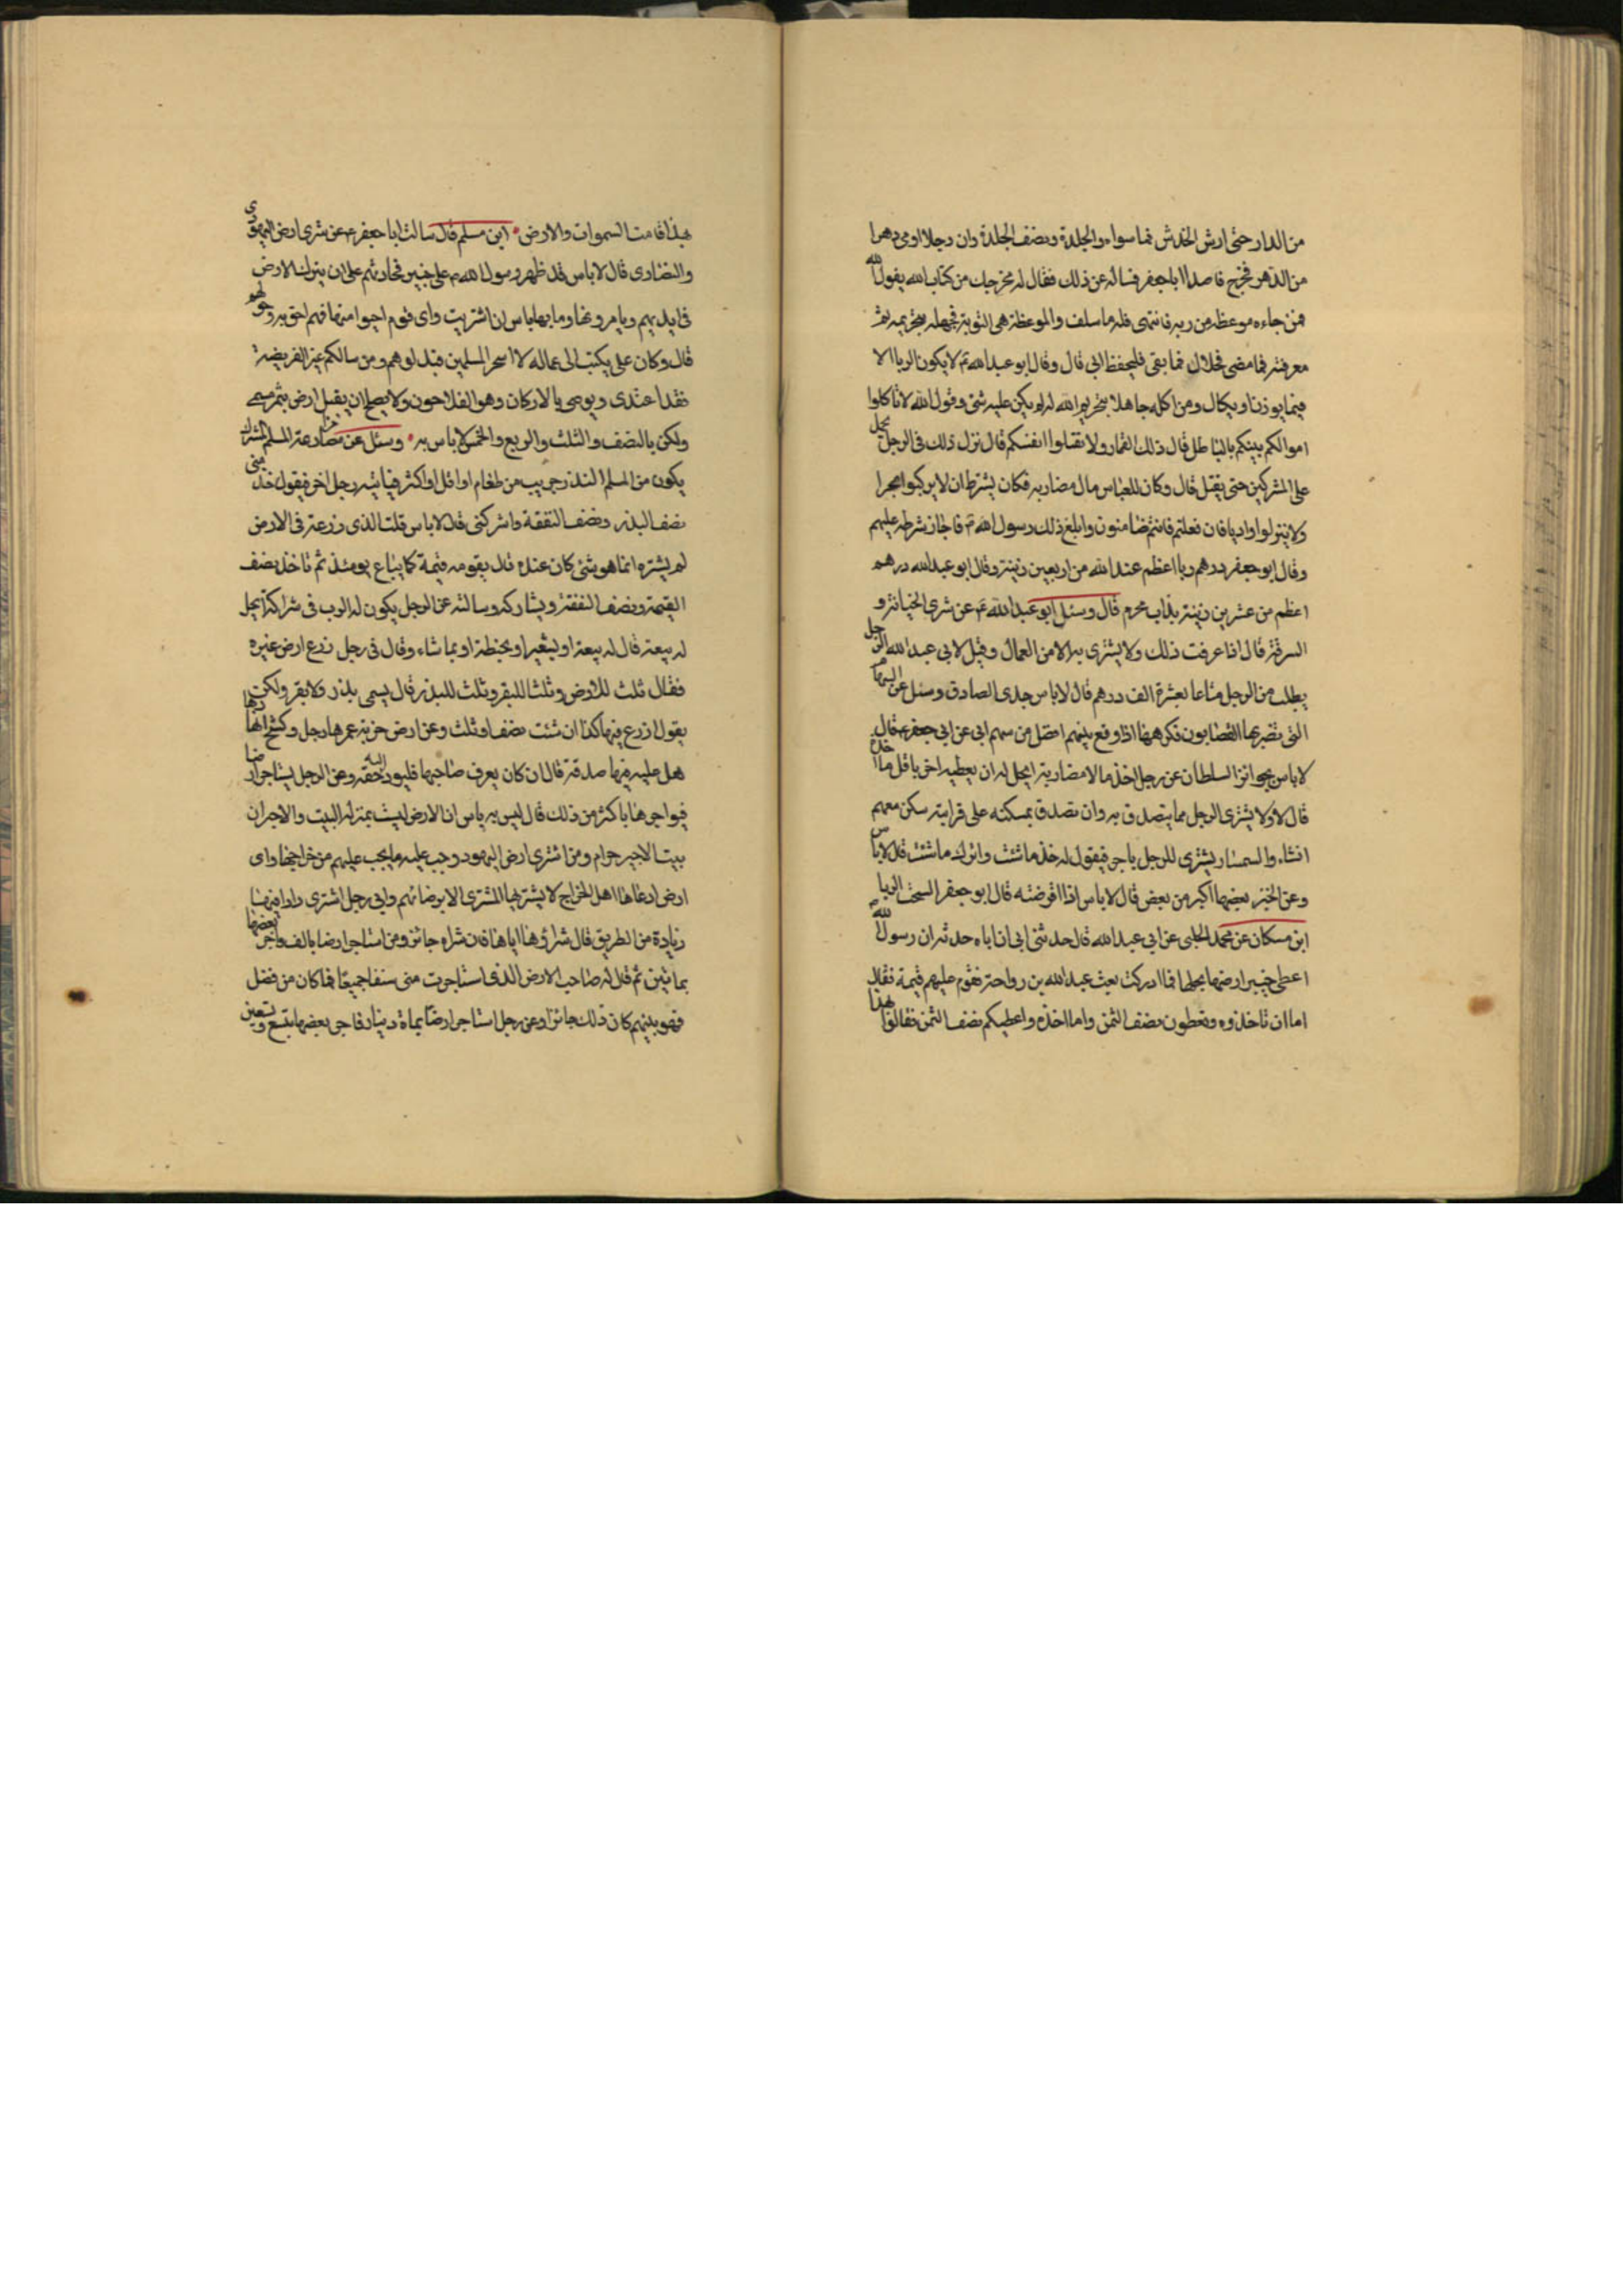 من الدار حتى ارش الخدش فما سواه والجلدة ونصف الجلدة وان رجلا اربى دهرا
من الدهر فخرج قاصدا ابا جعفر فساله عن ذلك فقال له مخرجك من كتاب الله يقول الله
فمن جاءه موعظة من ربه فانتهى فله ما سلف والموعظة هى التوبة فجهله بتحريمه ثم
معرفته فما مضى فحلال فما بقى فليحفظ قال وقال ابو عبد الله لا يكون الربا الا
فيما يوزن او يكال ومن اكله جاهلا بتحريم الله له لم يكن عليه شئ وقول الله لا تاكلوا
اموالكم بينكم بالباطل قال ذلك القمار ولا تقتلوا انفسكم قال نزل ذلك فى الرجل يحمل
على المشركين حتى يقتل قال وكان للعباس مال مضاربه فكان يشترط ان لا يركبوا بحرا
ولا ينزلوا واديا فان فعلتم فانتم ضامنون وابلغ ذلك رسول الله فاجاز شرطه عليهم
وقال ابو جعفر درهم ربا اعظم عند الله من اربعين زنية وقال ابو عبد الله درهم
اعظم من عشرين زنية بذات محرم قال وسئل ابو عبد الله عن شرى الخيانة و
السرقة قال اذا عرفت ذلك ولا يشترى به الا من العمال وقيل لابى عبد الله الرجل
يطلب من الرجل متاعا بعشرة الف درهم قال لا باس جدى الصادق وسئل عن السهام
التى يضربها القصابون فكرهها اذا وقع بينهم افضل من سهم ابى عن ابى جعفر قال
لا باس بجوائز السلطان عن رجل اخذ مالا مضاربة ايحل له ان يعطيه اخر باقل مما اخذه
قال لا ولا يشترى الرجل مما يتصدق به وان تصدق بمسكنه على قرابته سكن معهم
انشاء والسمسار يشترى للرجل باجر فيقول له خذ ما شئت واترك ما شئت قال لا باس
وعن الخبز بعضها اكبر من بعض قال لا باس اذا اقرضته قال ابو جعفر السحت الربا
ابن مسكان عن محمد الحلبى عن ابى عبد الله قال حدثنى ابى ان اباه حدثه ان رسول الله
اعطى خيبر ارضها ونخلها فما ادركت بعث عبد الله بن رواحة فقوم عليهم قيمة فقال
اما ان تاخذوه وتعطون نصف الثمن واما اخذه واعطيكم نصف الثمن فقالوا بهذا
بهذا قامت السموات والارض ابن مسلم قال سالت ابا جعفر عن شرى ارض اليهودى
والنصارى قال لا باس قد ظهر رسول الله على خيبر فخارجهم على ان يترك الارض
فى ايديهم ويعمرونها وما بها باس ان اشتريت واى قوم احيوا منها فهم احق به وهو لهم
قال وكان على يكتب الى عماله لا المسلمين ومن سالكم غير الفريضة
ويوصى بالاركان وهو الفلاحون ولا يصلح ان يقبل ارض بثمر مسمى
ولكن بالنصف والثلث والربع والخمس لا باس به وسئل عن مزارعة المسلم المشرك
يكون من المسلم البذر جريب من طعام او اقل او اكثر فياتيه رجل اخر فيقول خذ منى
نصف البذر ونصف النفقة واشركنى قال لا باس قلت الذى زرعه فى الارض
لم يشتره انما هو شئ كان عنده قال يقومه قيمة كما يباع يومئذ ثم ياخذ نصف
القيمة ونصف النفقة ويشاركه وسالته عن الرجل يكون له الرب فى شراكة ايحل
له بيعه قال له بيعه او بشعير او بحنطة او بما شاء وقال فى رجل زرع ارض غيره
فقال ثلث للارض وثلث للبقر وثلث للبذر قال يسمى بذر ولا بقر ولكن
يقول ازرع فيها كذا ان شئت نصف او ثلث وعن ارض خربة عمرها رجل وكسح انهارها
هل عليه فيها صدقة قال ان كان يعرف صاحبها فليرد اليه حقه وعن الرجل يستاجر ارضا
فيواجرها باكثر من ذلك قال ليس به باس ان الارض ليست بمنزلة البيت والاجير ان
بيت الاجير حرام ومن اشترى ارض اليهود وجب عليه ما يجب عليهم من خراجها واى
ارض ادعاها اهل الخراج لا يشتريها المشترى الا برضائهم وفى رجل اشترى دارا فيها
زيادة من الطريق قال شراؤها اياها فان شراه جائز ومن استاجر ارضا بالف واجر بعضها
بمائتين ثم قال له صاحب الارض الذى استاجرت منى جميعا فما كان من فضل
فهو بينهم كان ذلك جائزا وعن رجل استاجر ارضا بماة دينار فاجر بعضها بتسع وتسعين